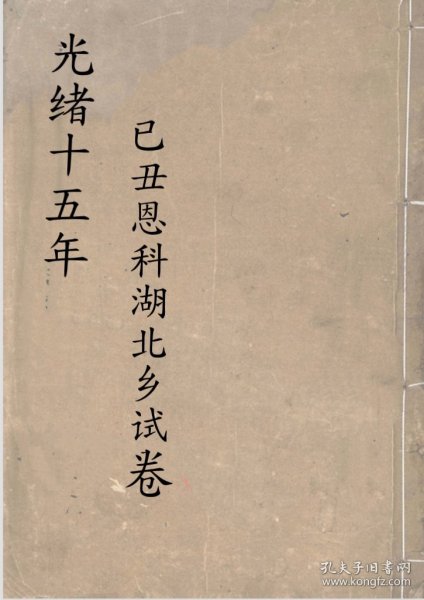 光绪十五年
已丑恩科湖北乡试卷
孔夫子旧书网
www.kongfz.com